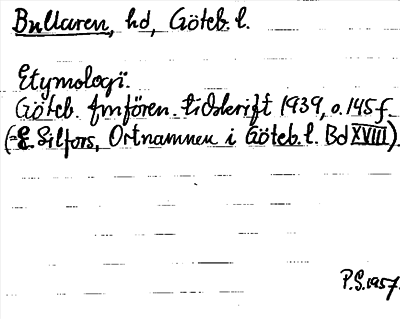 Bullaren, hd, Göteb. l.
Etymologi.
Göteb. fmfören. tidskrift 1939, s. 145 f.
(= E. Silfors, Ortnamnen i Göteb. l. Bd XVIII).
P.S. 1957.